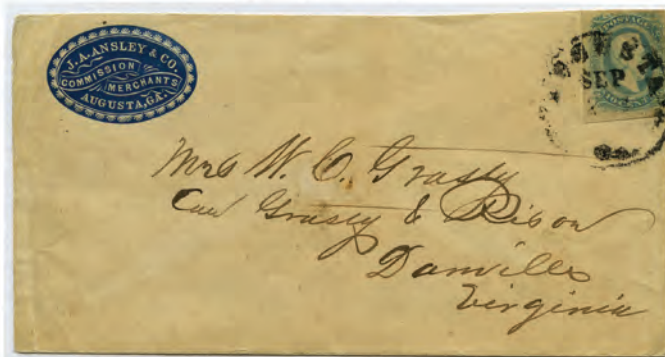 J. A. ANSLEY & CO.
COMMISSION
MERCHANTS
AUGUSTA, GA.
POSTAGE
AUGUSTA
SEP
Mrs W. C. Grasty
Care Grasty & Rison
Danville
Virginia